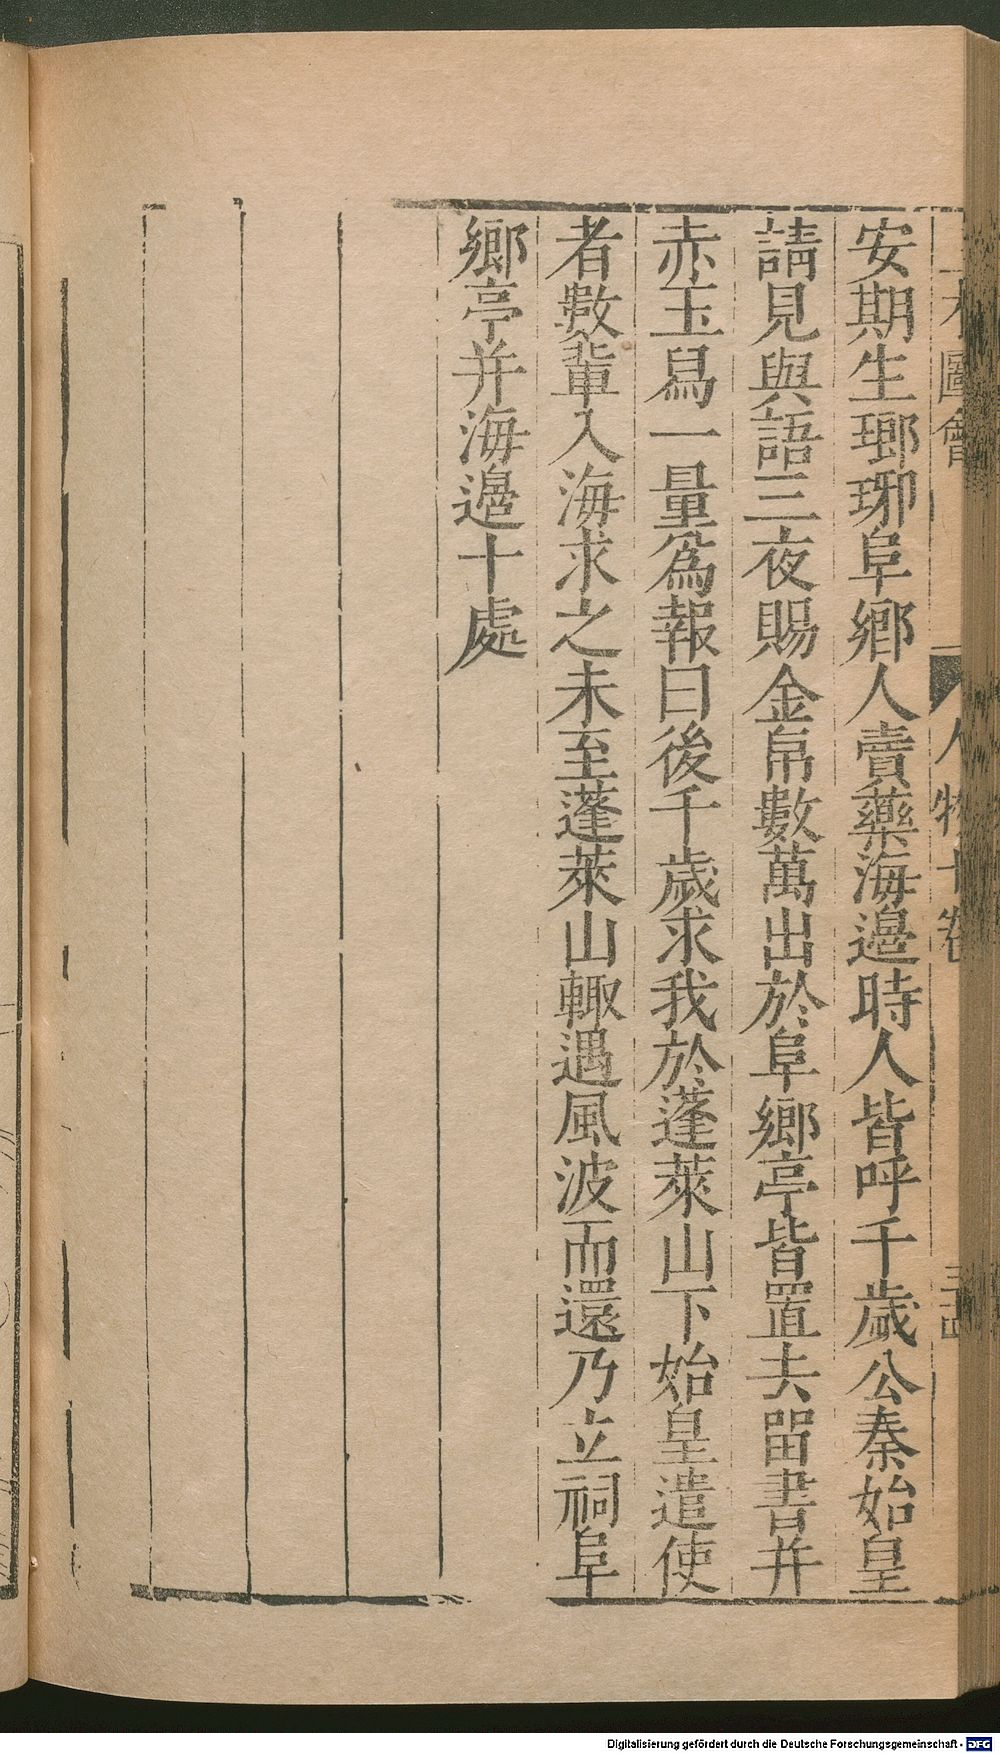 圖會
人物十卷
安期生瑯琊阜鄉人賣藥海邊時人皆呼千歲公秦始皇
請見與語三夜賜金帛數萬出於阜鄉亭皆置去留書并
赤玉舄一量爲報曰後千歲求我於蓬萊山下始皇遣使
者數輩入海求之未至蓬萊山輙遇風波而還乃立祠阜
鄉亭并海邊十處
Digitalisierung gefördert durch die Deutsche Forschungsgemeinschaft - DFG